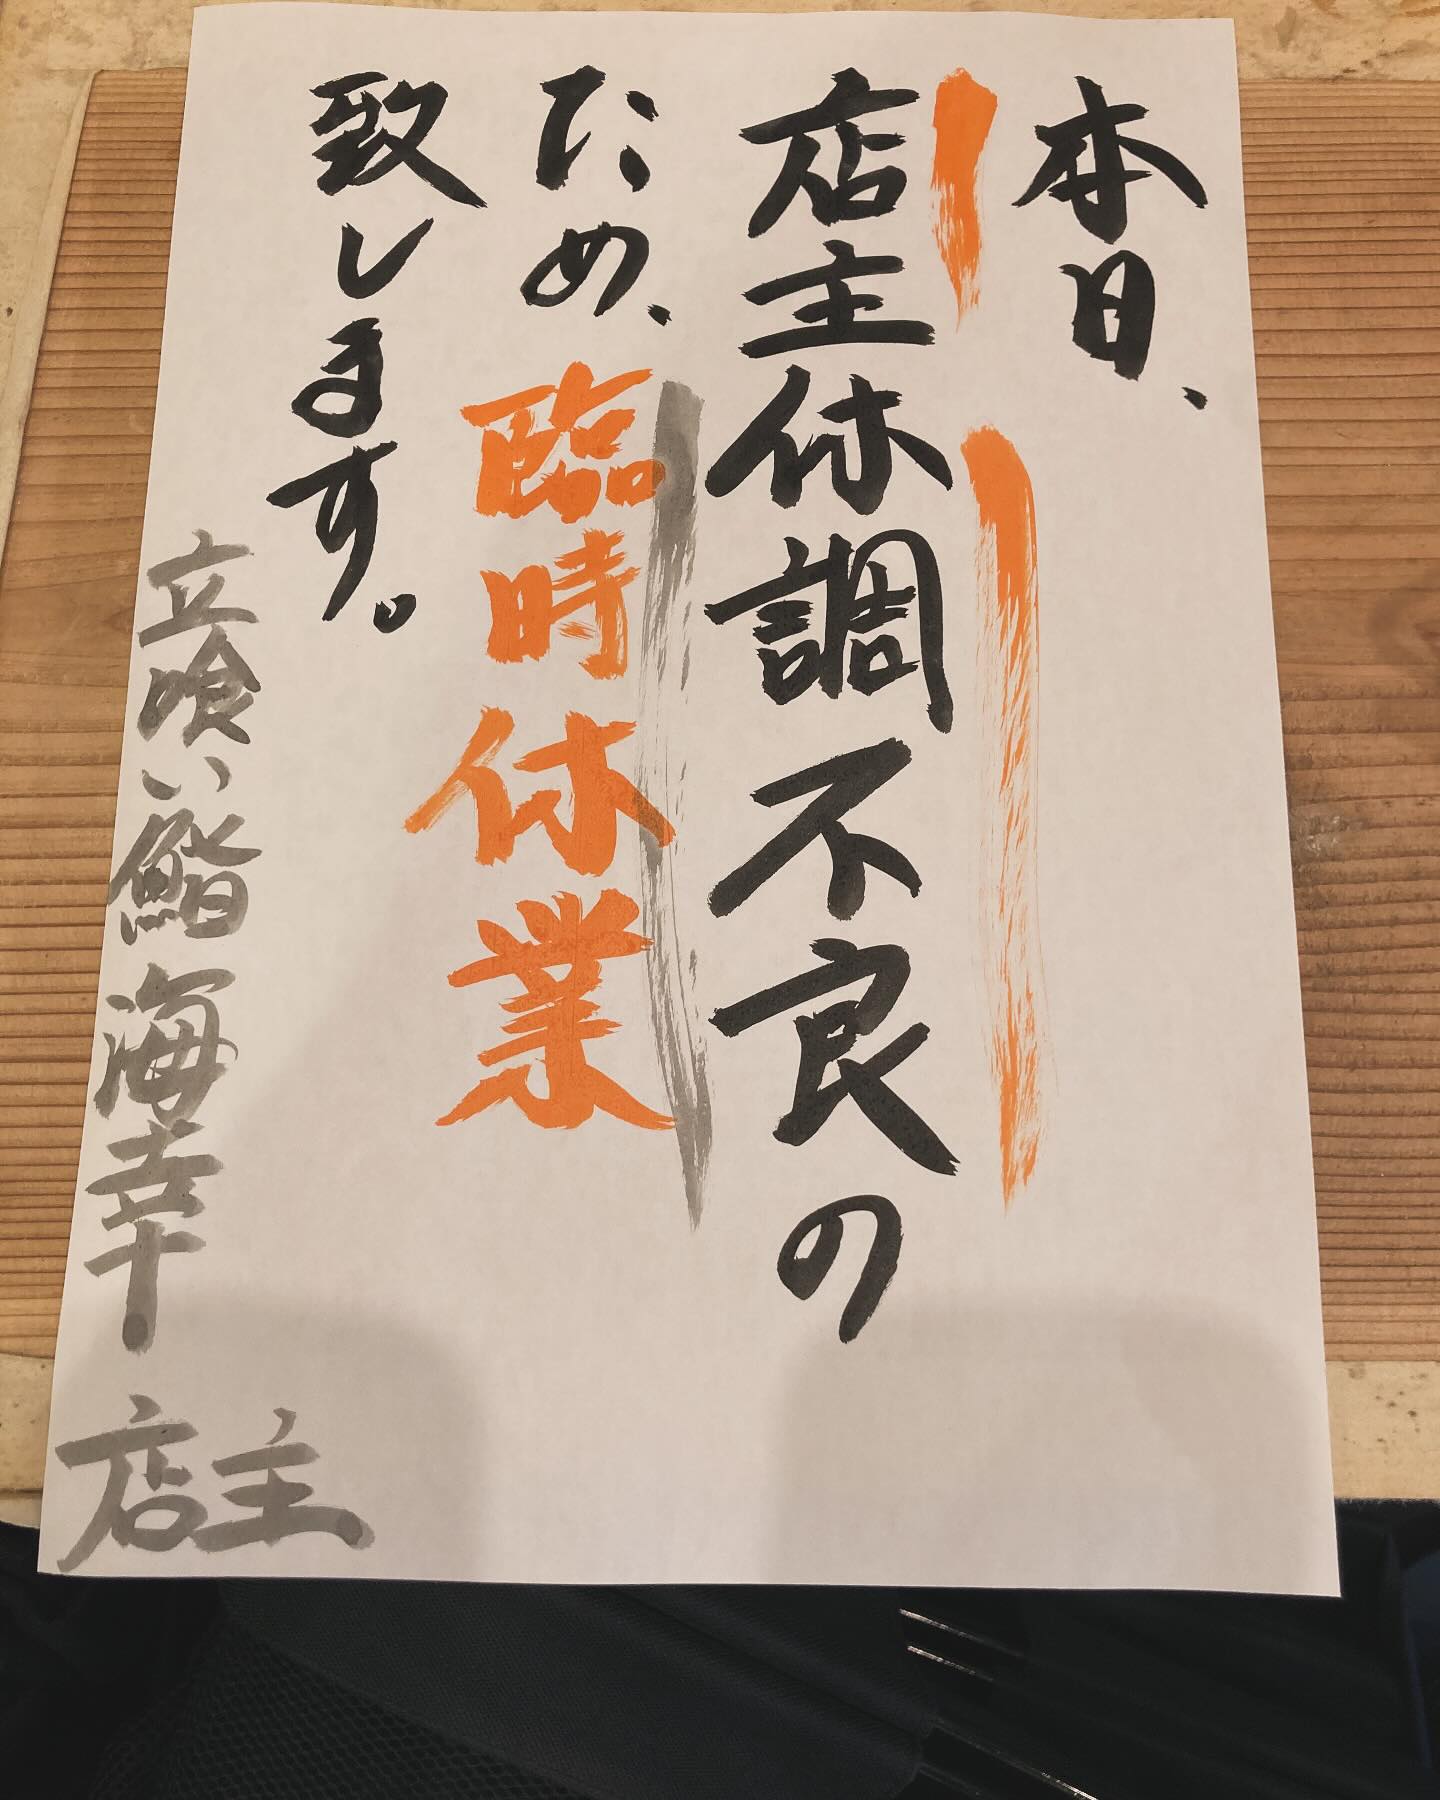 本日、
店主体調不良の
ため、臨時休業
致します。
立喰い鮨 海幸
店主